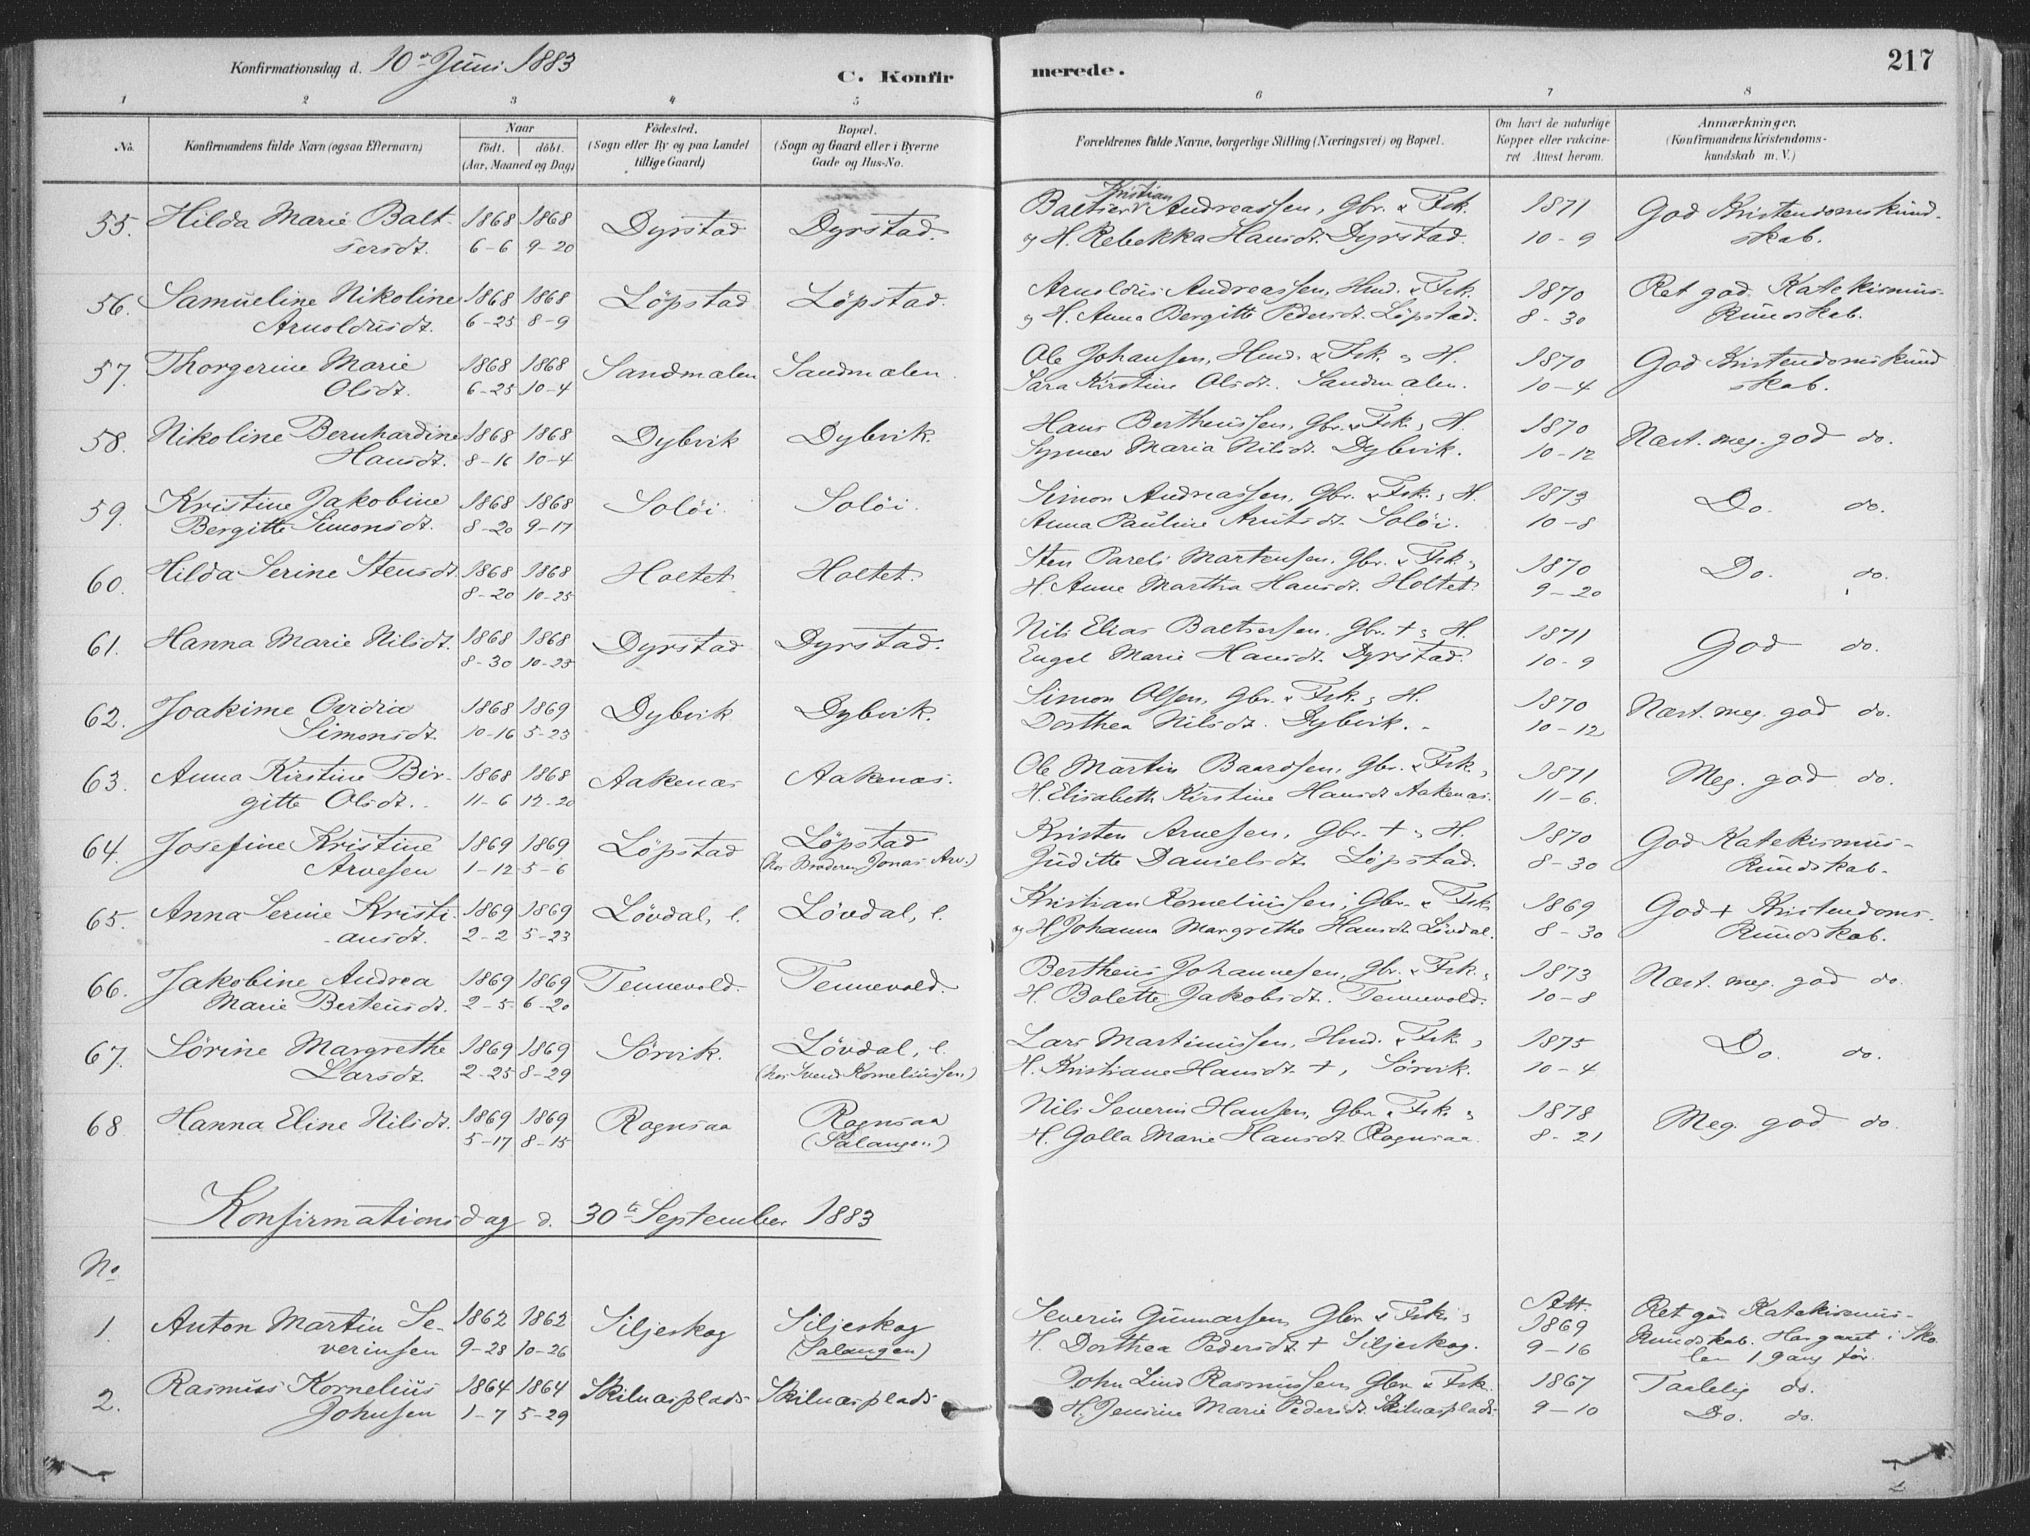 Konfirmationsdag d. 10de Juni 1883
C. Konfir
merede.
217
1 2 3 4 5 6 7 8
No.
Konfirmandens fulde Navn (ogsaa Efternavn)
Naar
født. døbt.
(Aar, Maaned og Dag)
Födested.
(Sogn eller By og paa Landet
tillige Gaard)
Bopæl.
(Sogn og Gaard eller i Byerne
Gade og Hus-No.
Forældrenes fulde Navne, borgerlige Stilling (Næringsvei) og Bopæl.
Om havt de naturlige
Kopper eller vakcine-
ret Attest herom.
Anmærkninger.
(Konfirmandens Kristendoms-
kundskab m. V.)
Kristian
55. Hilda Marie Balt- 1868 1868 Dyrstad Dyrstad. Baltser Andreassen, Gbr. & Fsk. 1871 God Kristendomskund-
sersdt. 6-6 9-20 og H. Rebekka Hansdt. Dyrstad. 10-9 skab.
56. Samueline Nikoline 1868 1868 Løpstad Løpstad. Arnoldus Andreassen, Hmd. & Fsk. 1870 Ret god Katekismus-
Arnoldusdt. 6-25 8-9 og H. Anna Bergitte Pedersdt. Løpstad. 8-30 Kundskab.
57. Thorgerine Marie 1868 1868 Sandmalen Sandmalen. Ole Johansen, Hmd. & Fsk. og H. 1870 God Kristendomskund
Olsdt. 6-25 10-4 Sara Kirstine Olsdt. Sandmalen. 10-4 skab.
58. Nikoline Bernhardine 1868 1868 Dybvik Dybvik. Hans Bertheussen, Gbr. & Fsk. og H. 1870 Næst. meg. god do.
Hansdt. 8-16 10-4 Maria Nilsdt. Dybvik. 10-12
59. Kristine Jakobine 1868 1868 Soløi. Soløi. Simon Andreassen, Gbr. & Fsk. og H. 1873 Do. do.
Bergitte Simonsdt. 8-20 9-17 Anna Pauline Arntsdt. Soløi. 10-8
60. Hilda Serine Stensdt. 1868 1868 Holtet Holtet. Sten Pareli Martensen, Gbr. & Fsk. og 1870 Do. do.
8-20 10-25 H. Anne Martha Hansdt. Holtet. 9-20
61. Hanna Marie Nilsdt. 1868 1868 Dyrstad Dyrstad. Nils Elias Baltsersen, Gbr. + og H. 1871 God do.
8-30 10-25 Engel Marie Hansdt. Dyrstad. 10-9
62. Joakime Ovidia 1868 1869 Dybvik Dybvik. Simon Olsen, Gbr. & Fsk. og H. 1870 Næst. meg. god do.
Simonsdt. 10-16 5-23 Dorthea Nilsdt. Dybvik. 10-12
63. Anna Kirstine Bir- 1868 1868 Aakenæs Aakenæs. Ole Martin Baardsen, Gbr. & Fsk. og 1871 Meg. god do.
gitte Olsdt. 11-6 12-20 H. Elisabeth Kirstine Hansdt Aakenæs. 11-6.
64. Josefine Kristine 1869 1869 Løpstad Løpstad Kristen Arnesen, Gbr. + og H. 1870 God Katekismus-
Arvesen 1-12 5-6 (hos Broderen Jonas Arv.) Juditte Danielsdt. Løpstad. 8-30 Kundskab.
65. Anna Serine Kristi- 1869 1869 Løvdal, l. Løvdal, l. Kristian Korneliussen, Gbr. & Fsk. 1869 God + Kristendoms-
ansdt. 2-2 5-23 og H Johanna Margrethe Hansdt. Løvdal. 8-30 Kundskab.
66. Jakobine Andrea 1869 1869 Tennevold. Tennevold. Bertheus Johannesen, Gbr. & Fsk. og 1873 Næst. meg. god do.
Marie Berteusdt. 2-5 6-20 H. Bolette Jakobsdt. Tennevold. 10-8
67. Sørine Margrethe 1869 1869 Sørvik. Løvdal, l. Lars Martinussen, Hmd. & Fsk. og 1875 Do. do.
Larsdt. 2-25 8-29 (hos Svend Korneliussen) H. Kristiane Hansdt. +, Sørvik. 10-4
68 Hanna Eline Nilsdt. 1869 1869 Rognsaa Rognsaa Nils Severin Hansen, Gbr. & Fsk. og 1878 Meg. god do.
5-17 8-15 (Salangen) H. Golla Marie Hansdt. Rognsaa. 8-21
Konfirmationsdag d. 30te September 1883
No
1. Anton Martin Se- 1862 1862 Siljeskog Siljeskog Severin Gunnarsen, Gbr & Fsk. og Att. 1869 Ret god Katekismus-
verinsen 9-28 10-26 (Salangen) H. Dorthea Pedersdt. + Siljeskog. 9-16 Kundskab. Har gaaet i Sko
len 1 gang før.
2. Rasmus Kornelius 1864 1864 Skilnæsplads Skilnæsplads John Lind Rasmussen, Gbr. & Fsk. 1867 Taalelig do.
Johnsen 1-7 5-29 H. Jensine Marie Pedersdt. Skilnæsplads. 9-10 Do. do.